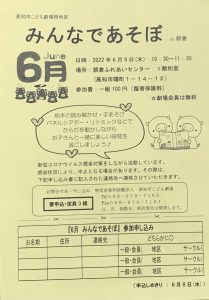 高知市こども劇場西地区
みんなであそぼ in 朝倉
6月
June
日時:2022年6月9日(木) 10:30~11:30
場所:朝倉ふれあいセンター 1階和室
(高知市曙町1-14-12)
参加費:一組100円(傷害保険料)
☆劇場会員は無料
絵本の読み聞かせ・手あそび
パネルシアター・リトミックなどで
からだを動かしながら
お子さんと一緒に楽しい時間を
過ごしましょう♪
新型コロナウイルス感染対策をしながら活動しています。
感染状況により、中止となる場合があります。その際は、
下記申し込み書に記入された連絡先へ連絡させていただきます。
要申込・定員3組
【6月 みんなであそぼ】参加申し込み
お名前 住所 連絡先 どちらかに○
一般・会員( 地区 サークル)
一般・会員( 地区 サークル)
一般・会員( 地区 サークル)
(申込しめきり:6月8日(水)